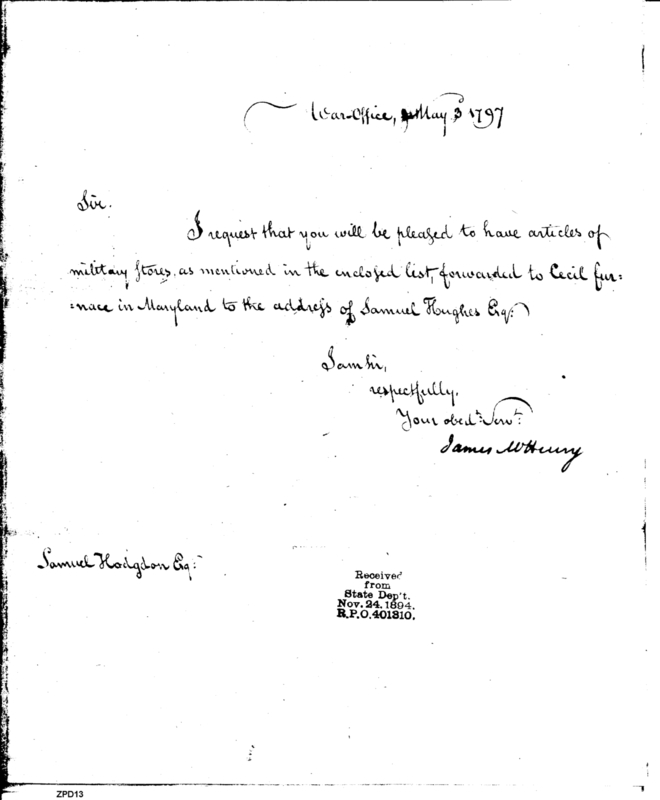 War-Office, May 3d 1797
Sir.
I request that you will be pleased to have articles of
military stores, as mentioned in the enclosed list, forwarded to Cecil fur=
=nace in Maryland to the address of Samuel Hughes Esq:
I am Sir,
respectfully.
Your obed.t Serv.t
James McHenry
Samuel Hodgdon Esq:
Received
from
State Dep't.
Nov. 24. 1894.
R.P.O. 401310.
ZPD13